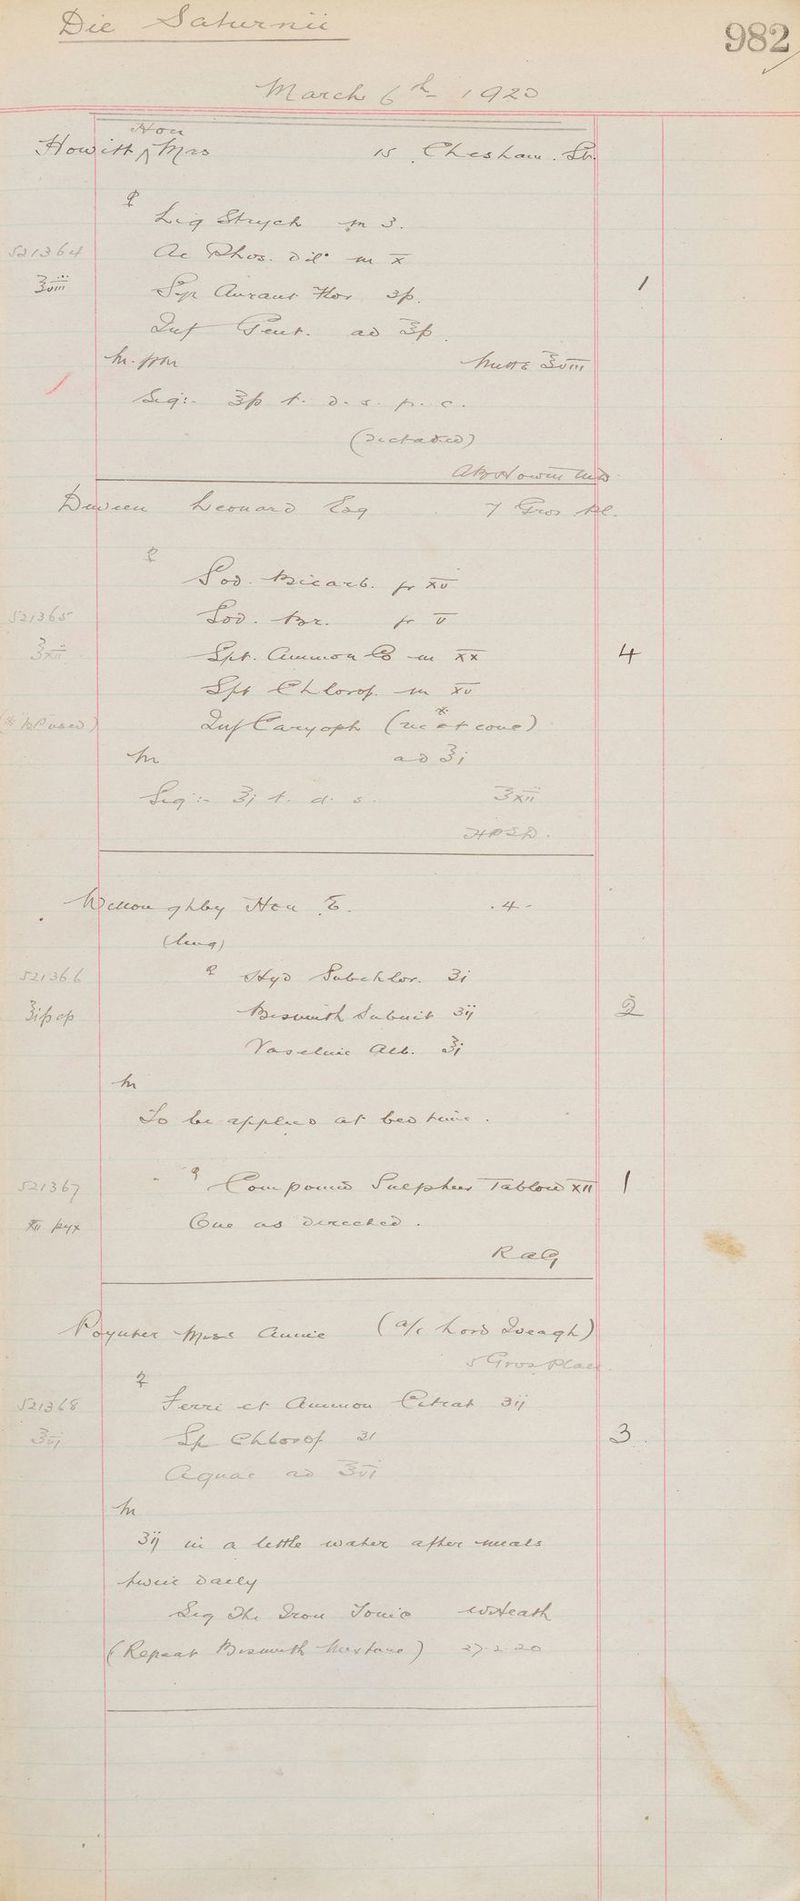 Die Saturnii
982
March 6th 1920
Hon
Howitt ^ Mrs 15 Chesham. St.
℞
Liq Strych m 3.
521364 Ac Phos. Dil. m x
℥viii Syr Aurant Flor ʒß. 1
Inf Gent. ad ℥ß.
M. Mitte ℥viii
Sig:- ℥ß t. d. s. p. c.
(dictated)
Howitt MD
Leonard Esq 7 Gros Pl.
℞
Sod. Bicarb. gr xv
521365 Sod. Br. gr v
℥xii Spt. Ammon Co m xx 4
Spt Chlorof. m xv
Inf Caryoph (rec * conc)
M ad ℥i
Sig:- ℥i t. d. s. ℥xii
Willoughby Hon E. . 4 -
521366 ℞ Hyd Subchlor. ʒi
Bismuth Subnit ʒij 2
Vaseline Alb. ℥i
M
To be applied at bed time.
521367 ℞ Compound Sulphur Tabloid XII 1
XII pyx One as directed.
RAG
Poynter Miss Annie (a/c Lord Iveagh)
5 Gros Place.
℞
521368 Ferri et Ammon Citrat ʒij
℥vi Sp Chlorof ʒi 3
Aquae ad ℥vi
M
ʒij in a little water after meals
twice daily
Sig The Iron Tonic W Heath
(Repeat Bismuth Mixture) 27.2.20